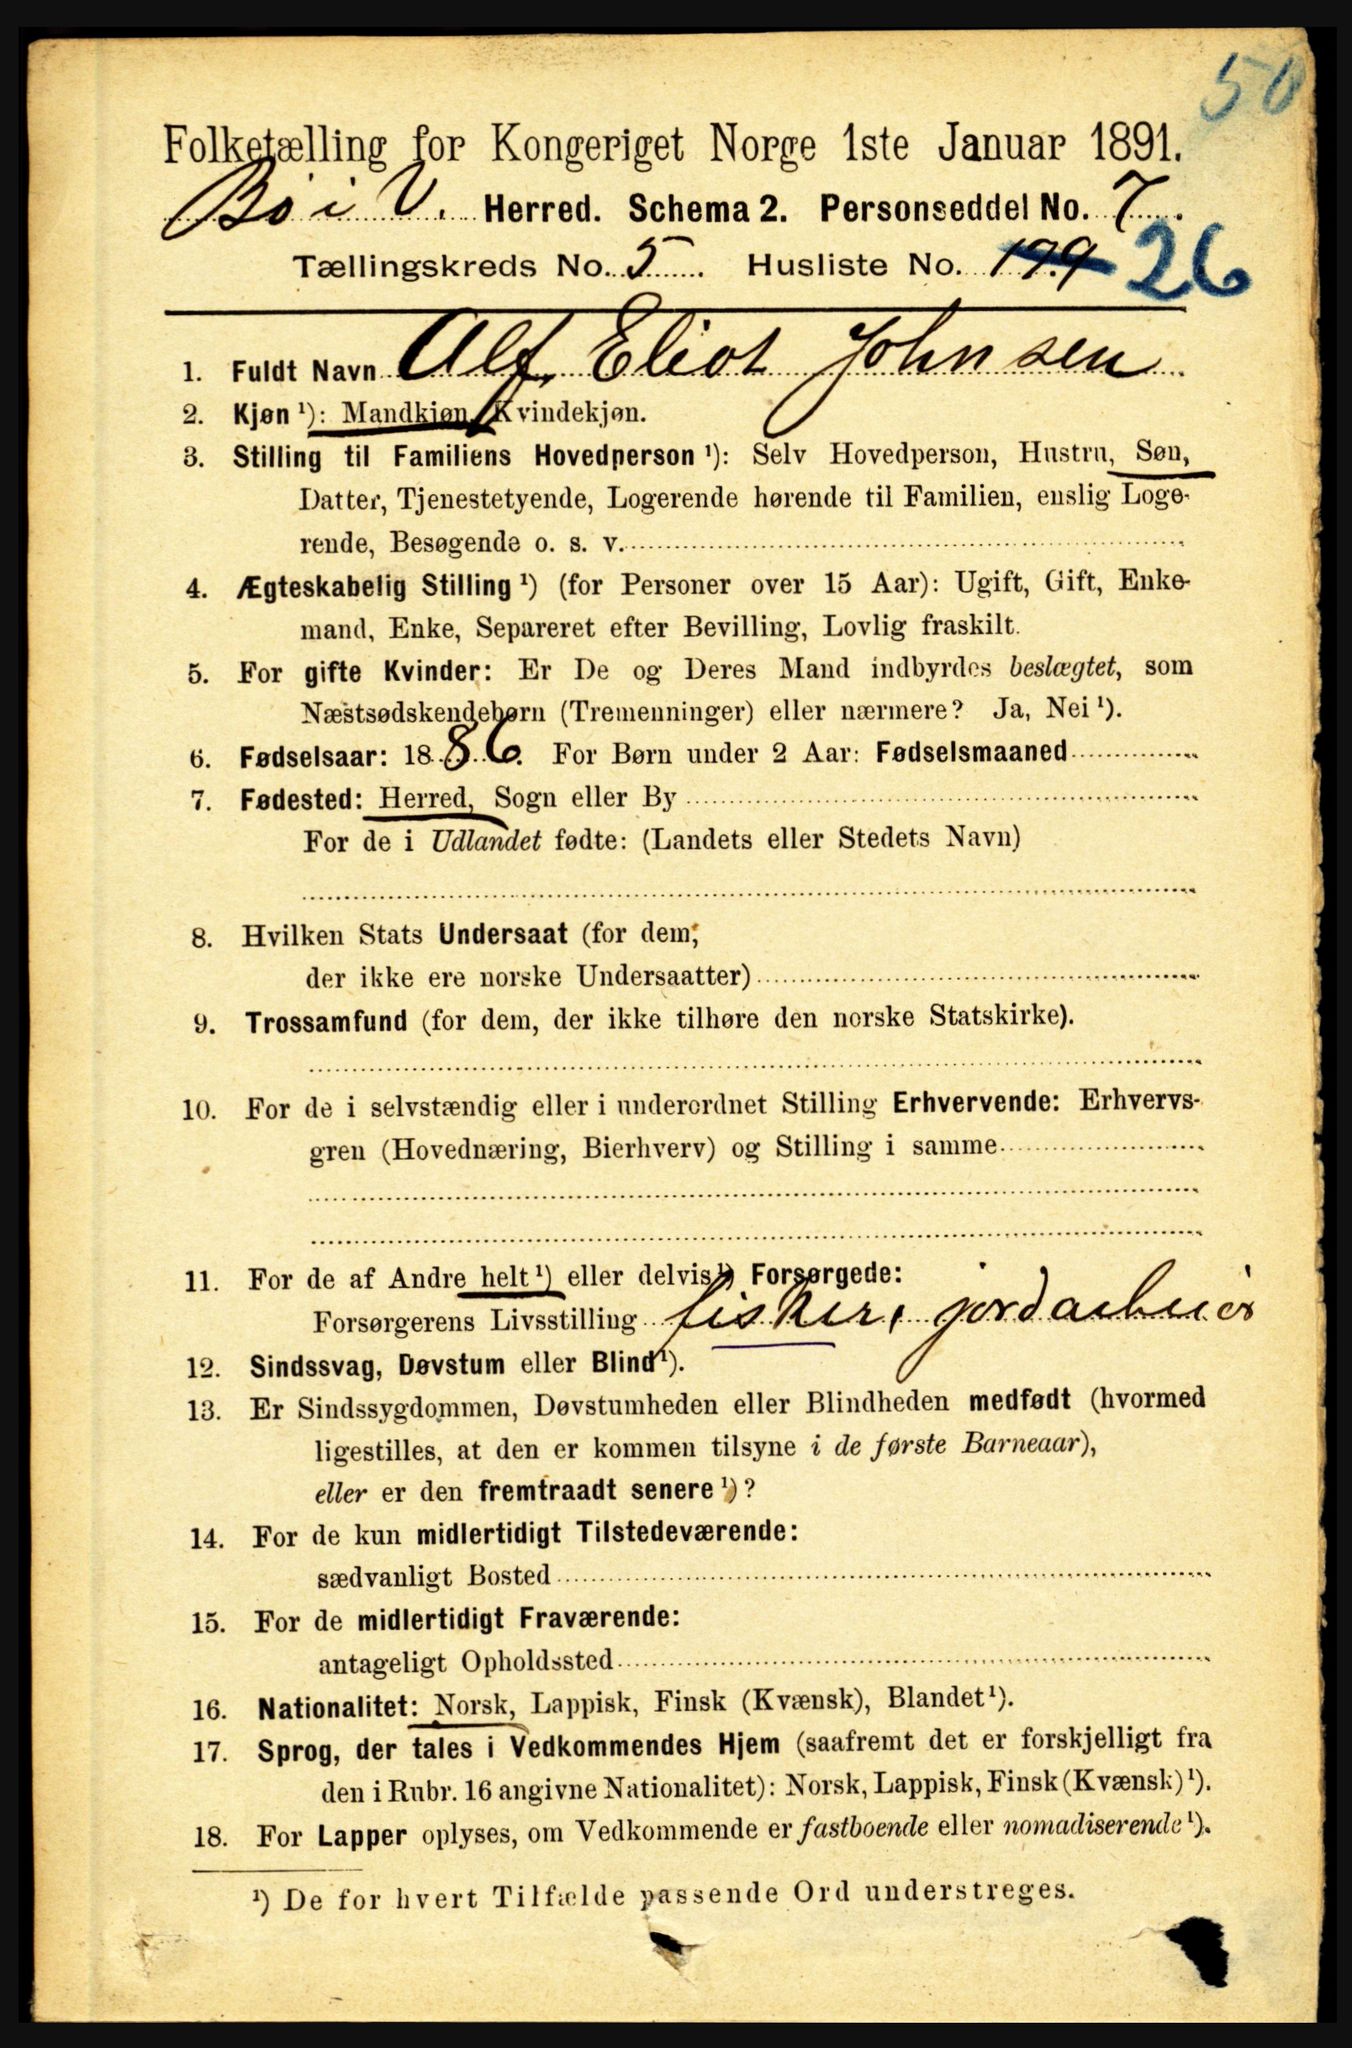 50
Folketælling for Kongeriget Norge 1ste Januar 1891.
Bø i V. Herred. Schema 2. Personseddel No. 7.
Tællingskreds No. 5. Husliste No. 199 26
1. Fuldt Navn Alf Eliot Johnsen
2. Kjøn ¹): Mandkjøn, Kvindekjøn.
3. Stilling til Familiens Hovedperson ¹): Selv Hovedperson, Hustru, Søn,
Datter, Tjenestetyende, Logerende hørende til Familien, enslig Loge-
rende, Besøgende o. s. v.
4. Ægteskabelig Stilling ¹) (for Personer over 15 Aar): Ugift, Gift, Enke-
mand, Enke, Separeret efter Bevilling, Lovlig fraskilt.
5. For gifte Kvinder: Er De og Deres Mand indbyrdes beslægtet, som
Næstsødskendebørn (Tremenninger) eller nærmere? Ja, Nei ¹).
6. Fødselsaar: 1886. For Børn under 2 Aar: Fødselsmaaned
7. Fødested: Herred, Sogn eller By
For de i Udlandet fødte: (Landets eller Stedets Navn)
8. Hvilken Stats Undersaat (for dem,
der ikke ere norske Undersaatter)
9. Trossamfund (for dem, der ikke tilhøre den norske Statskirke).
10. For de i selvstændig eller i underordnet Stilling Erhvervende: Erhvervs-
gren (Hovednæring, Bierhverv) og Stilling i samme
11. For de af Andre helt ¹) eller delvis ¹) Forsørgede:
Forsørgerens Livsstilling fisker, jordarbeier
12. Sindssvag, Døvstum eller Blind ¹).
13. Er Sindssygdommen, Døvstumheden eller Blindheden medfødt (hvormed
ligestilles, at den er kommen tilsyne i de første Barneaar),
eller er den fremtraadt senere ¹)?
14. For de kun midlertidigt Tilstedeværende:
sædvanligt Bosted
15. For de midlertidigt Fraværende:
antageligt Opholdssted
16. Nationalitet: Norsk, Lappisk, Finsk (Kvænsk), Blandet ¹).
17. Sprog, der tales i Vedkommendes Hjem (saafremt det er forskjelligt fra
den i Rubr. 16 angivne Nationalitet): Norsk, Lappisk, Finsk (Kvænsk) ¹).
18. For Lapper oplyses, om Vedkommende er fastboende eller nomadiserende ¹).
¹) De for hvert Tilfælde passende Ord understreges.